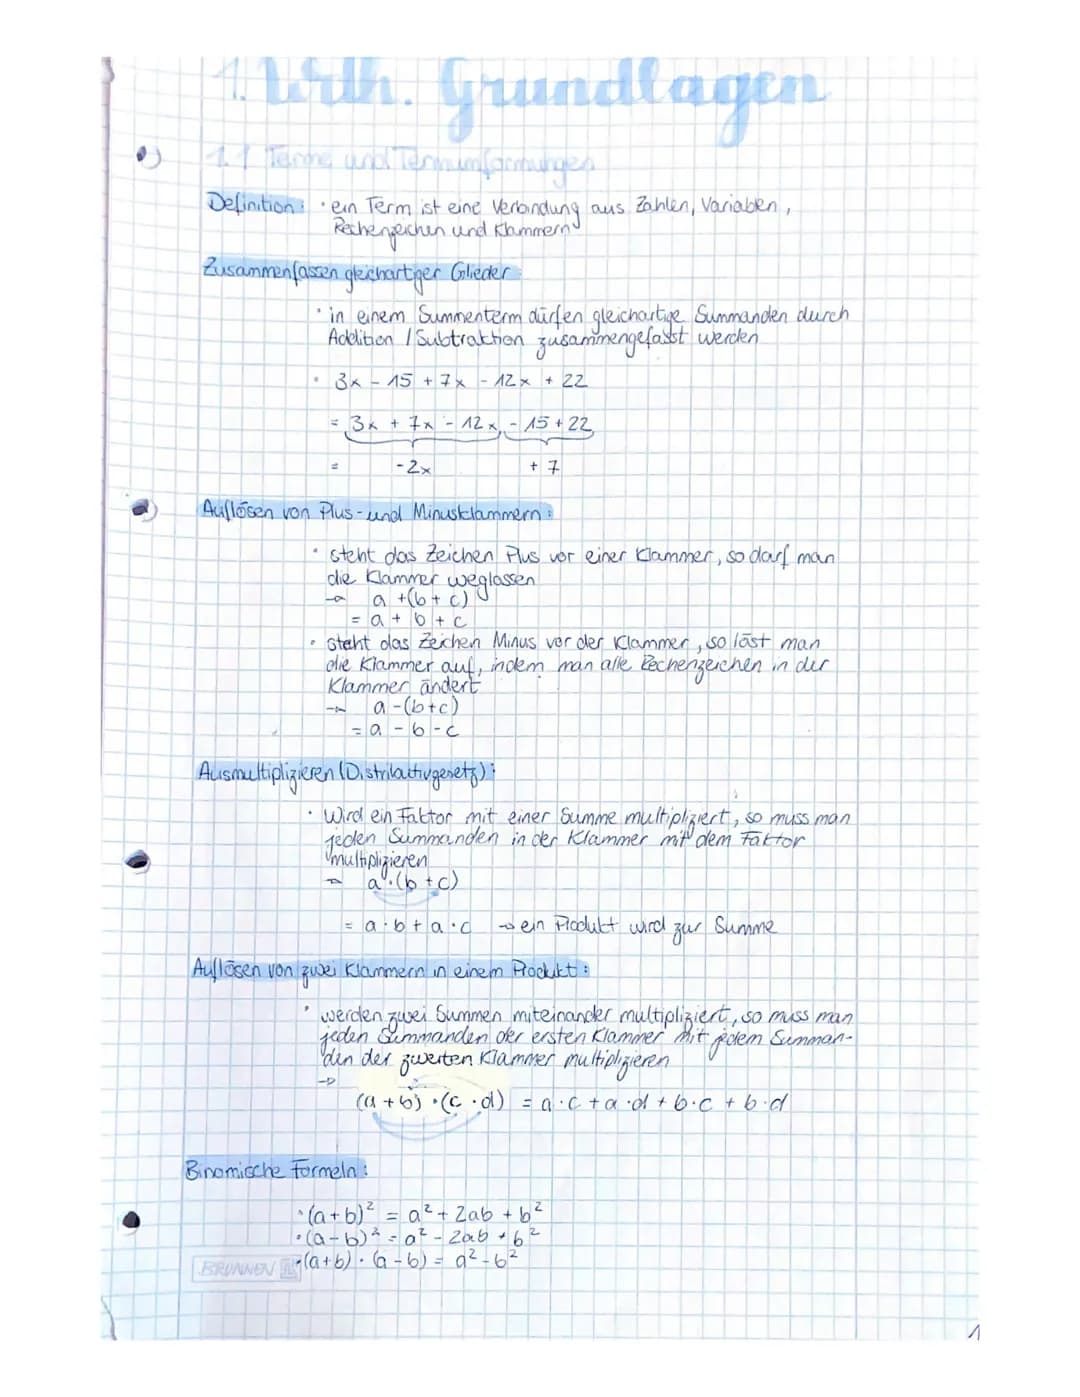 1. Wdh. Grundlagen
1.1 Terme und Termumformungen
Definition: · ein Term ist eine Verbindung aus Zahlen, Variablen,
Rechenzeichen und Klammern
Zusammenfassen gleichartiger Glieder:
· in einem Summenterm dürfen gleichartige Summanden durch
Addition / Subtraktion zusammengefasst werden
· 3x - 15 + 7x - 12x + 22
= 3x + 7x - 12x - 15 + 22
= -2x + 7
Auflösen von Plus- und Minusklammern:
· steht das Zeichen Plus vor einer Klammer, so darf man
die Klammer weglassen
→ a + (b + c)
= a + b + c
· steht das Zeichen Minus vor der Klammer, so löst man
die Klammer auf, indem man alle Rechenzeichen in der
Klammer ändert
→ a - (b+c)
= a - b - c
Ausmultiplizieren (Distributivgesetz):
· Wird ein Faktor mit einer Summe multipliziert, so muss man
jeden Summanden in der Klammer mit dem Faktor
multiplizieren
→ a · (b + c)
= a · b + a · c → ein Produkt wird zur Summe
Auflösen von zwei Klammern in einem Produkt:
· werden zwei Summen miteinander multipliziert, so muss man
jeden Summanden der ersten Klammer mit jedem Summan-
den der zweiten Klammer multiplizieren
→
(a + b) · (c · d) = a · c + a · d + b · c + b · d
Binomische Formeln:
· (a + b)² = a² + 2ab + b²
· (a - b)² = a² - 2ab + b²
BRUNNEN · (a + b) · (a - b) = a² - b²
1